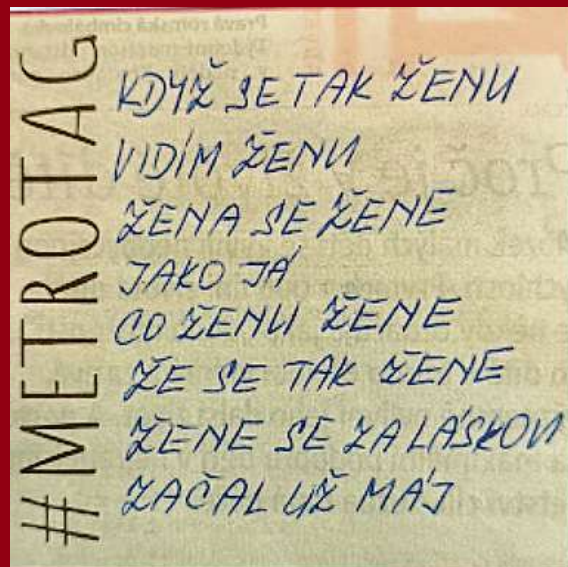 #METROTAG
KDYŽ SE TAK ŽENU
VIDÍM ŽENU
ŽENA SE ŽENE
JAKO JÁ
CO ŽENU ŽENE
ŽE SE TAK ŽENE
ŽENE SE ZA LÁSKOU
ZAČAL UŽ MÁJ